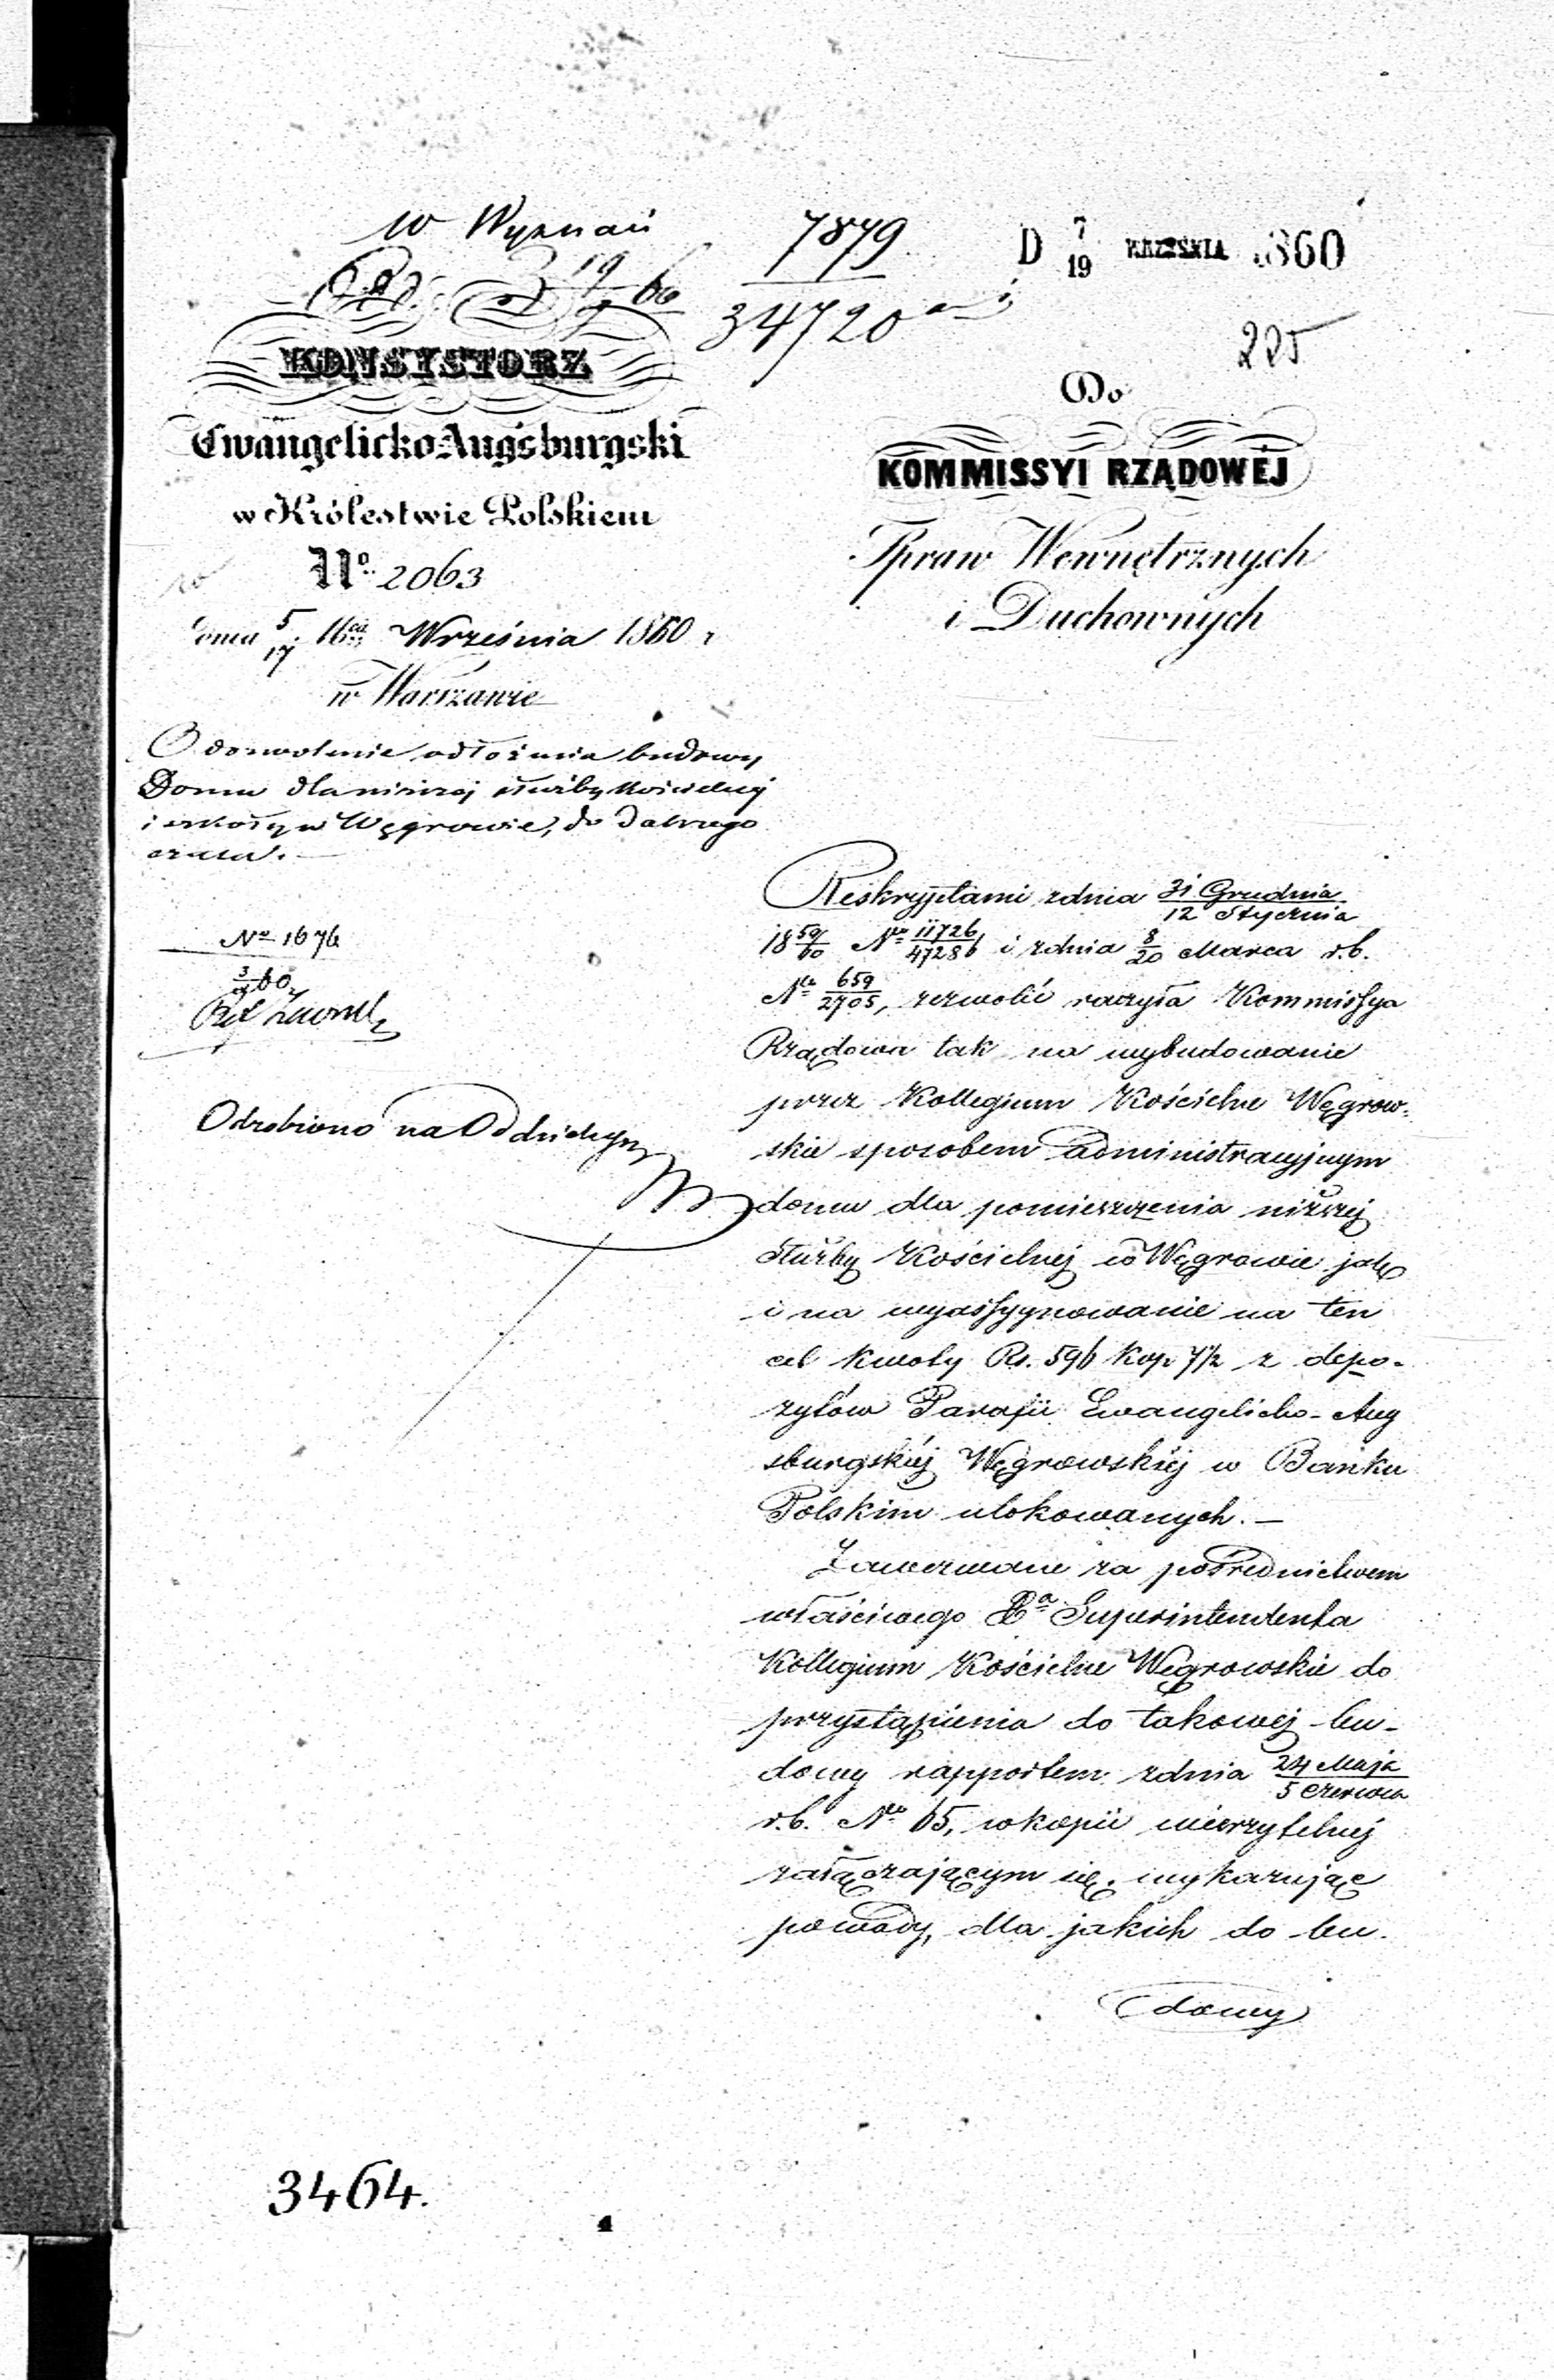 W Wyznań
7879
34720
D 7/19 WRZEŚNIA 1860
225
KONSYSTORZ
Ewangelicko-Augsburgski
w Królestwie Polskiem
No. 2063
dnia 5/17 Mca Września 1860 r
w Warszawie
O dozwolenie odłożenia budowy
Domu dla niższej służby Kościelnej
i szkoły w Węgrowie, do dalszego
czasu. —
No 1676
Odrobiono na Oddzielnym
Do
KOMMISSYI RZĄDOWÉJ
Spraw Wewnętrznych
i Duchownych
Reskryptami z dnia 31 Grudnia/12 Stycznia
18 59/60 Nr 11726/47286 i z dnia 8/20 Marca r.b.
Nr 659/2705, zezwolić raczyła Kommissya
Rządowa tak na wybudowanie
przez Kollegium Kościelne Węgrow-
skie sposobem administracyjnym
domu dla pomieszczenia niższej
służby Kościelnej w Węgrowie jak
i na wyassygnowanie na ten
cel kwoty Rs. 596 kop 7½ z depo-
zytów Parafii Ewangelicko-Aug
sburgskiéj Węgrowskiéj w Banku
Polskim ulokowanych. —
Zawezwane za pośrednictwem
właściwego Superintendenta
Kollegium Kościelne Węgrowskie do
przystąpienia do takowéj bu-
dowy rapportem z dnia 24 Maja/5 Czerwca
r.b. No 65, w kopii wierzytelnéj
załączającym się, wykazując
powody, dla jakich do bu-
dowy
3464.